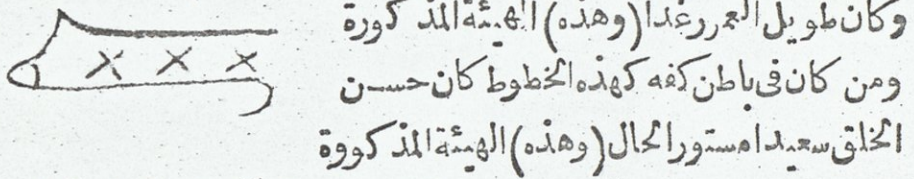 وكان طويل العمر رغدا (وهذه) الهيئة المذكورة
ومن كان فى باطن كفه كهذه الخطوط كان حسن
الخلق سعيدا مستور الحال (وهذه) الهيئة المذكووة